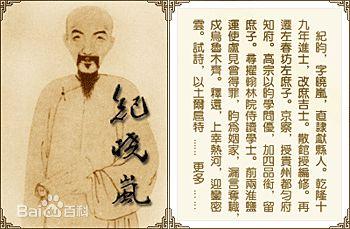 紀晓嵐
Bai百科
紀昀，字曉嵐，直隸獻縣人。乾隆十
九年進士，改庶吉士。散館授編修。再
遷左春坊左庶子。京察，授貴州都勻府
知府。高宗以昀學問優，加四品銜，留
庶子。尋擢翰林院侍讀學士。前兩淮鹽
運使盧見曾得罪，昀為姻家，漏言奪職，
戍烏魯木齊。釋還，上幸熱河，迎鑾密
雲。試詩，以土爾扈特 …… 更多 ……